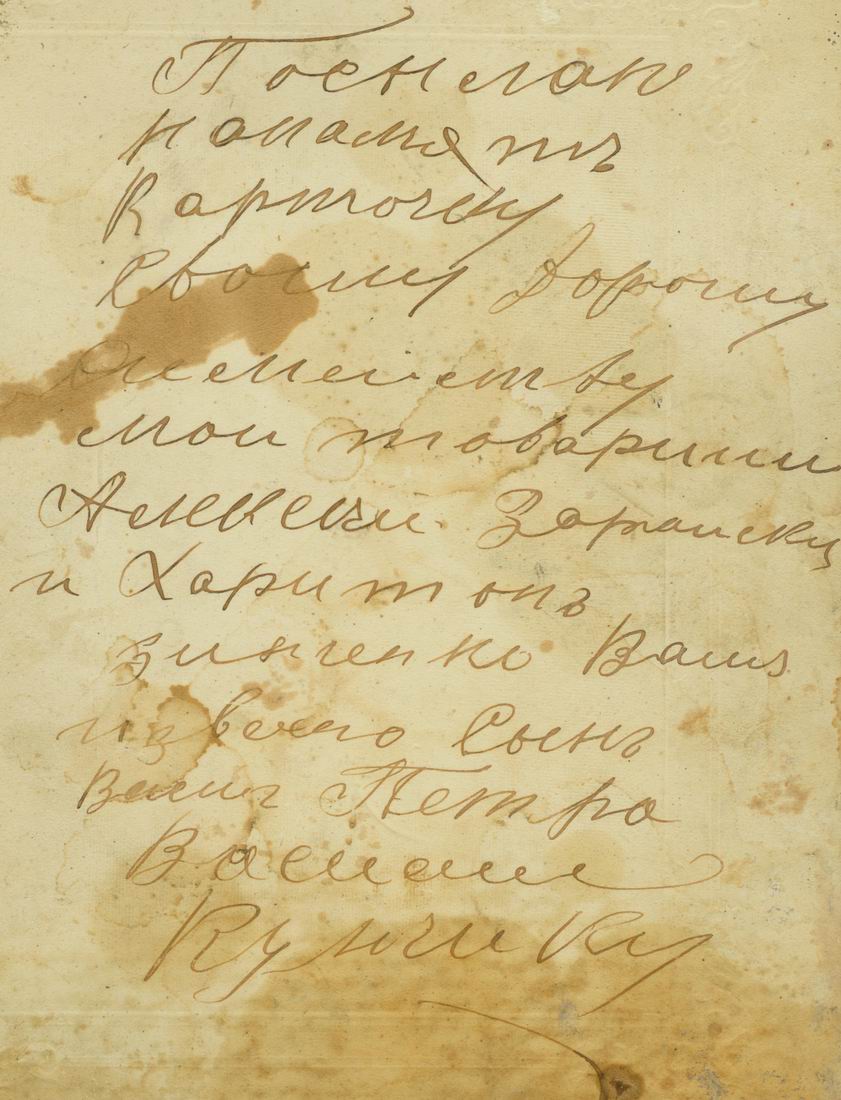 Посылаю
на память
Карточку
Своиму Дорогому
Симейству
мои товарищи
Алексей Зарайски
и Харитонъ
Зинченко Вашъ
известно Сынъ
Вашъ Петро
Васил